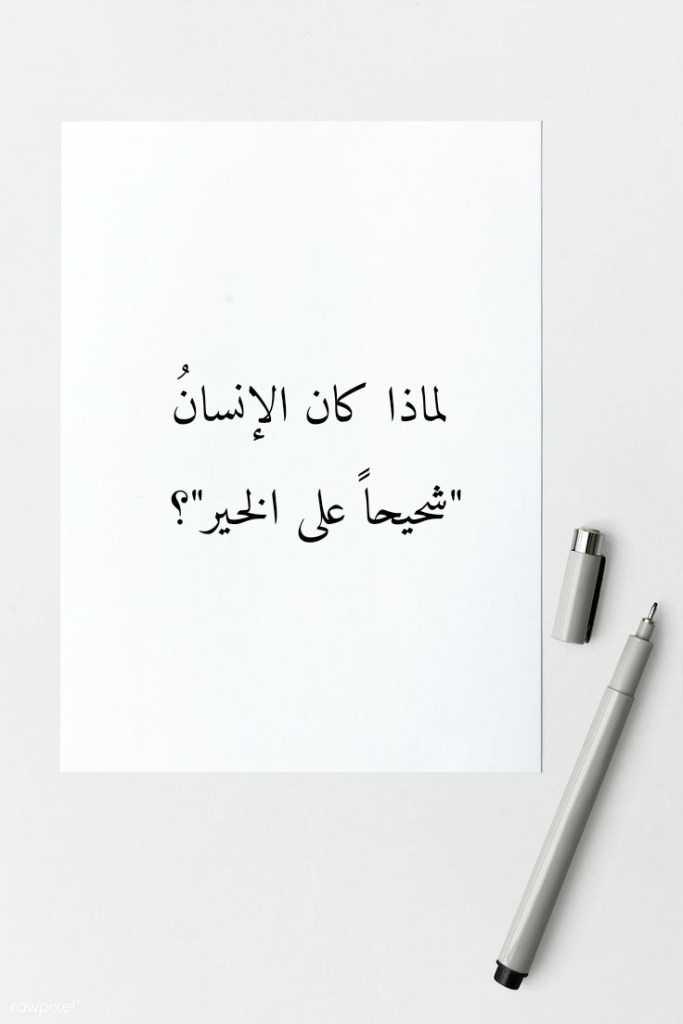 لماذا كان الإنسانُ
"شحيحاً على الخير"؟
rawpixel